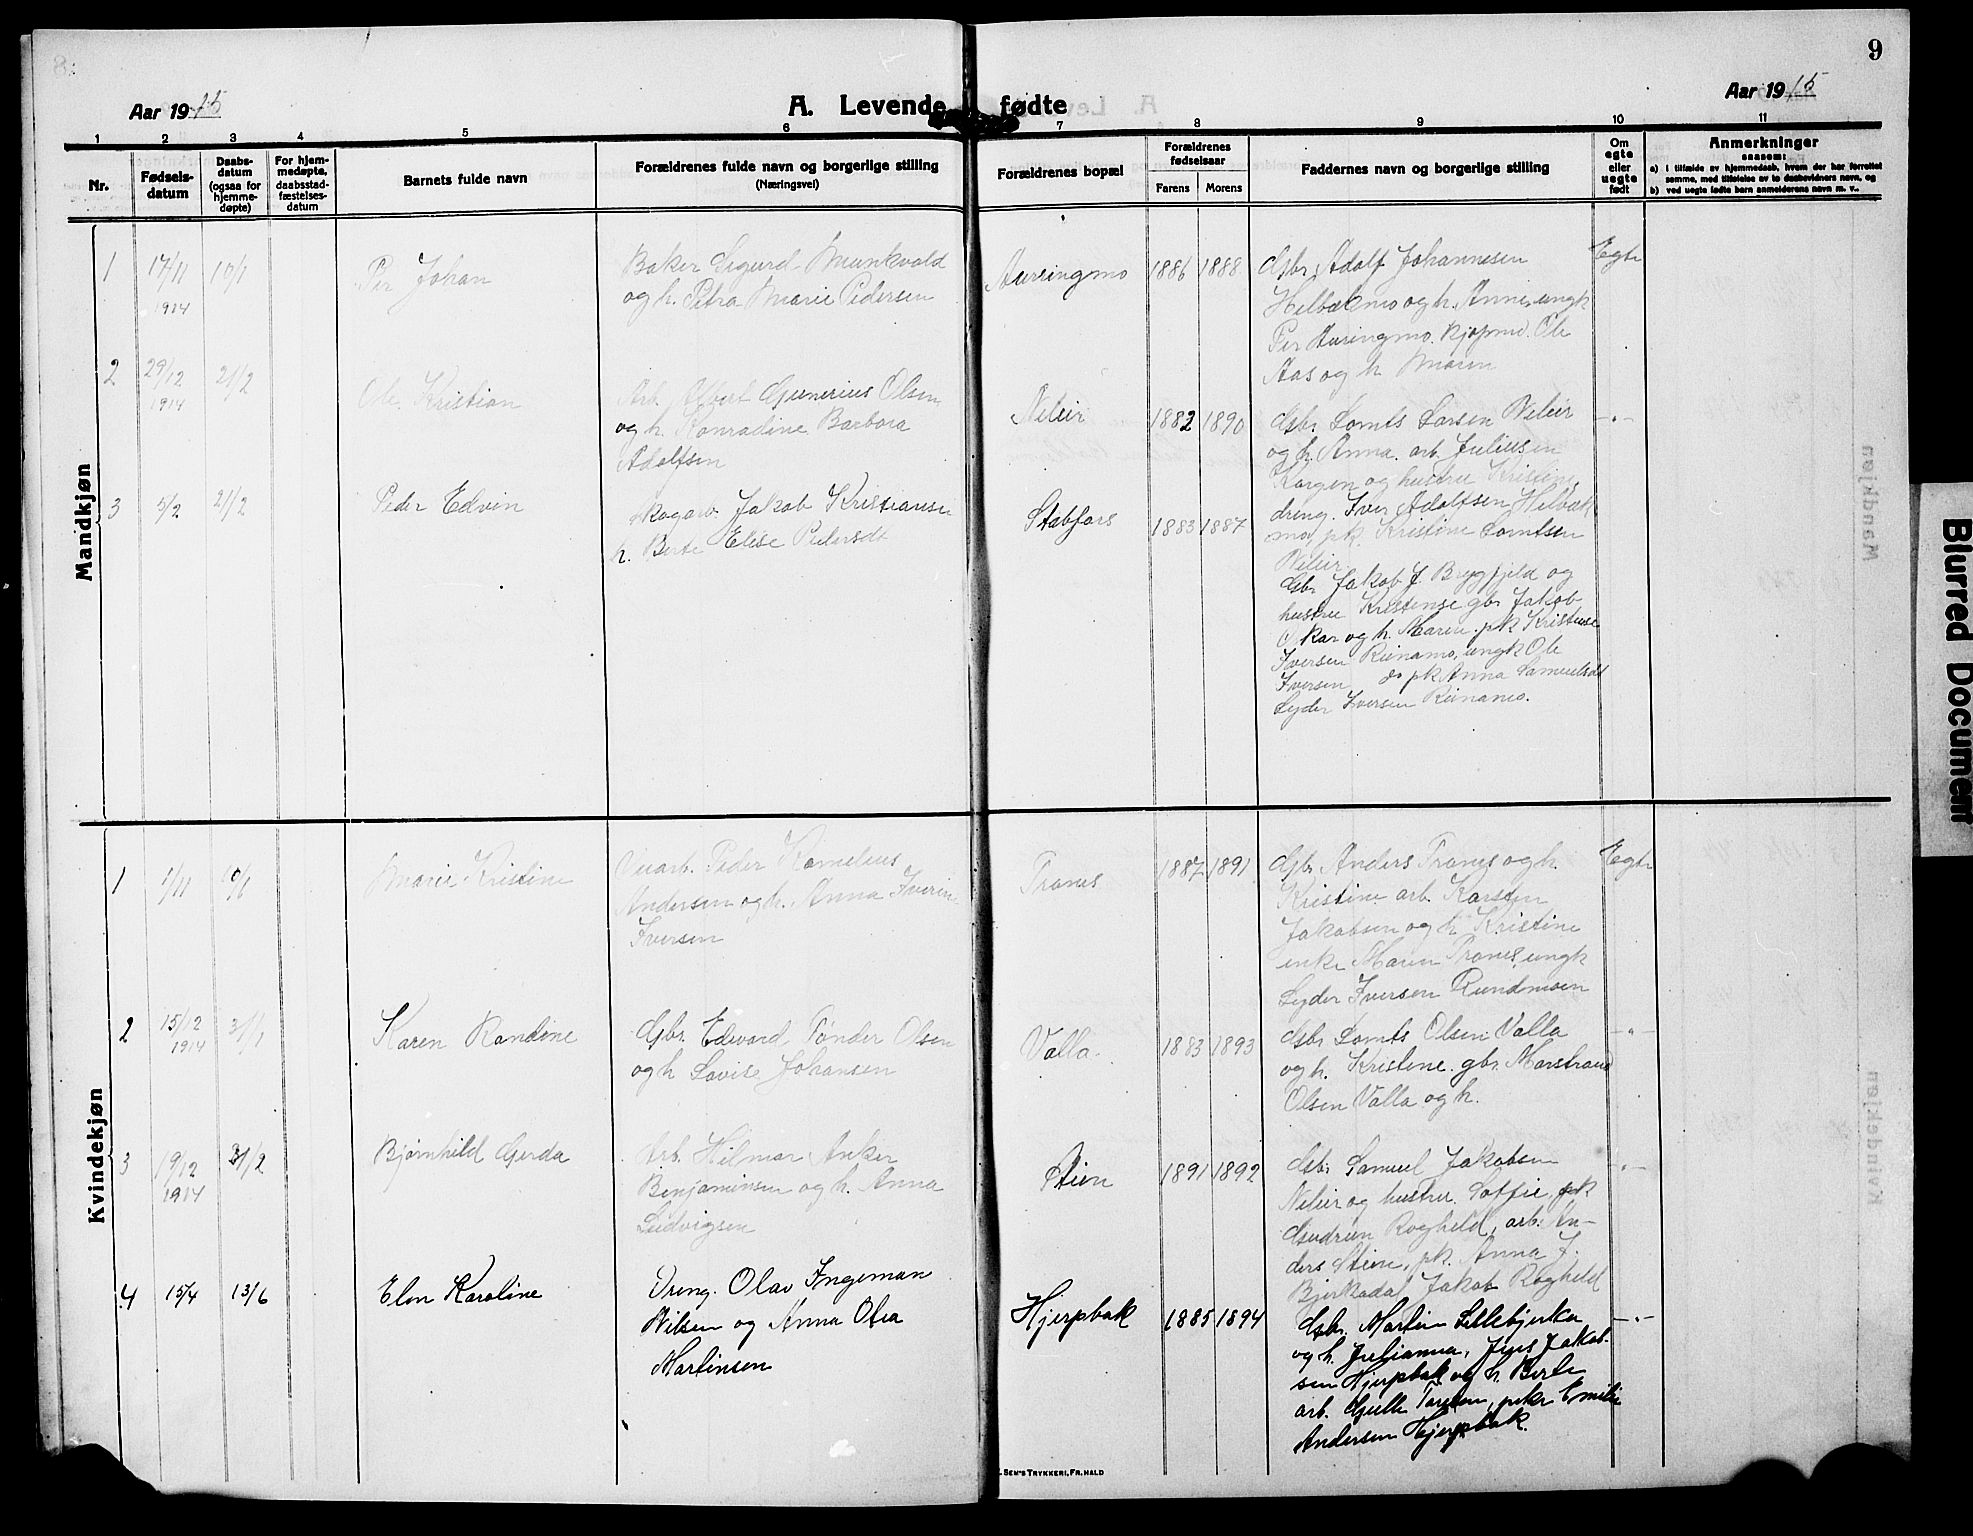 9
Aar 1915
A. Levende fødte
Aar 1915
1 2 3 4 5 6 7 8 9 10 11
Nr.
Fødsels-
datum
Daabs-
datum
(ogsaa for
hjemme-
døpte)
For hjem-
medøpte,
daabsstad-
fæstelses-
datum
Barnets fulde navn
Forældrenes fulde navn og borgerlige stilling
(Næringsvei)
Forældrenes bopæl
Forældrenes
fødselsaar
Farens Morens
Faddernes navn og borgerlige stilling
Om
egte
eller
uegte
født
Anmerkninger
saasom:
a) i tilfælde av hjemmedaab, hvem der har forrettet
samme, med tilføielse av to daabsvidners navn, og
b) ved uegte fødte barn anmelderens navn m. v..
Mandkjøn
1 17/11 1914 10/1
Per Johan
Baker Sigurd Munkvold
og h. Petra Marie Pedersen
Auringmo 1886 1888
Gbr. Adolf Johannesen
Helbækmo og h. Anne, ungk
Per Auringmo. kjøpmd. Ole
Aas og h. Maren
Egte
2 29/12 1914 21/2
Ole Kristian
Arb. Albert Gunerius Olsen
og h. Konradine Barbora
Adolfsen
Nileir 1882 1890
Gbr. Lornts Larsen Nileir
og h. Anna. arb. Julius
og hustru Kristine,
dreng. Iver Adolfsen Helbæk
mo, pk. Kristine Lorntsen
Nileir
-"-
3 5/2 21/2
Peder Edvin
skogarb. Jakob Kristiansen
h. Berte Elise Pedersdt
Stabfors 1883 1887
Gbr. Jakob J. Brygfjeld og
hustru Kristense gbr. Jakob
Oskar og h. Maren. pk Kristense
Iversen Rinamo, ungk Ole
Iversen do pk Anna Samuelsdt
Lyder Iversen Rinamo.
Kvindekjøn
1 1/11
Marie Kristine
Peder Kornelius
Andersen og h. Anna Iverine
Iversen
Tranes 1887 1891
Gbr. Anders Tranes og h.
Kristine arb. Karsten
Jakobsen og h Kristine
enke Maren Tranes, ungk
Lyder Iversen Rundmoen
Egte
2 15/12 1914 31/1
Karen Randine
Gbr. Edvard Tønder Olsen
og h Lovise Johansen
Valla. 1883 1893
Gbr Lornts Olsen Valla
og h. Kristine. gbr. Marstrand
Olsen Valla og h.
-"-
3 19/12 1914 21/2
Bjørnhild Gerda
Arb. Hilmar Anker
Benjaminsen og h. Anna
Ludvigsen
Stien 1891 1892
Gbr. Samuel Jakobsen
Nileir og hustru Soffie, pk
Gudrun Røghild, arb. An-
ders Stien, pk. Anna J.
Bjerkadal, Jakob Røghild
-"-
4 15/4 13/6
Elen Karoline
Dreng. Olav Ingeman
Nilsen og Anna Olea
Martinsen
Hjerpbak 1885 1894
Gbr. Martin Lillebjerka
og h. Julianna, Jens Jakob-
sen Hjerpbak og h. Berle
arb. , pike Emilie
Andersen Hjerpbak.
-"-
SEN'S TRYKKERI, FR.HALD
Blurred Document